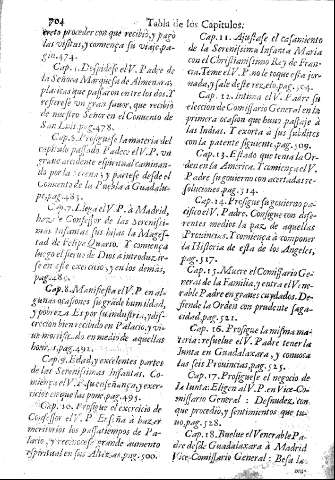 704
Tabla de los Capitulos.
creto proceder con que recibió, y pagó
las visitas, y comença su viaje, pa-
gin. 474.
Cap. 5. Despidese el V. Padre de
la Señora Marquesa de Almenara,
platicas que passaron entre los dos. Y
refierese un gran favor, que recibió
de nuestro Señor en el Convento de
San Luis. pag. 478.
Prosiguese la materia del
capitulo passado. Padece el V. P. un
grave accidente espiritual caminan-
do por la
y partese desde el
Convento de la Puebla a Guadalu-
pe, pag. 483.
Cap. 7. Llega el V. P. à Madrid,
haze Confessor de las Serenissi-
mas Infantas sus hijas la Mages-
tad de Felipe Quarto. Y comença
luego el siervo de Dios à introduzir-
se en este exercicio, y en los demàs,
pag. 286.
Cap. 8. Manifiesta el V. P. en al-
gunas ocasiones su grande humildad,
y pobreza. Es por su industria, y dis-
crecion bien recibido en Palacio, y vi-
ve mortificado en medio de aquellas
honras, pag. 491.
Cap. 9. Edad, y excelentes partes
de las Serenissimas Infantas. Co-
mienza el V. P. su enseñança, y exer-
cicio en que las pone, pag. 495.
Cap. 10. Prosigue el exercicio de
Confessor el V. P. Enseña à hazer
meritorios los passatiempos de Pa-
lacio, y reconoce grande aumento
espiritual en sus Altezas, pag. 500.
Cap. 11. Ajustase el casamiento
de la Serenissima Infanta Maria
con el Christianissimo Rey de Fran-
cia. Teme el V. P. no le toque esta jor-
nada, y sale deste rezelo, pag. 504.
Cap. 12. Intima el V. Padre su
eleccion de Comissario General en la
primera ocasion que huvo passaje à
las Indias. Y exorta à sus subditos
con la patente siguiente, pag. 509.
Cap. 13. Estado que tenia la Or-
den en la America. Y comiença el V.
Padre su govierno con acertadas re-
soluciones, pag. 514.
Cap. 14. Prosigue su govierno pa-
cifico el V. Padre. Consigue con dife-
rentes medios la paz de aquellas
Provincias. Y comiença à componer
la Historia de esta de los Angeles,
pag. 517.
Cap. 15. Muere el Comissario Ge-
neral de la Familia, y entra el V. ve-
nerable Padre en grandes cuydados. De-
fiende la Orden con prudente saga-
cidad, pag. 521.
Cap. 16. Prosigue la misma ma-
teria: resuelve el V. Padre tener la
Junta en Guadalaxara, y convoca
las seis Provincias, pag. 525.
Cap. 17. Prosiguese el negocio de
la Junta: Eligen al V. P. en Vice-Co-
missario General: Desnudez, con
que procediò, y sentimientos que tu-
vo, pag. 528.
Cap. 18. Buelve el Venerable Pa-
dre desde Guadalaxara à Madrid
Vice-Comissario General: Besa la
ma-